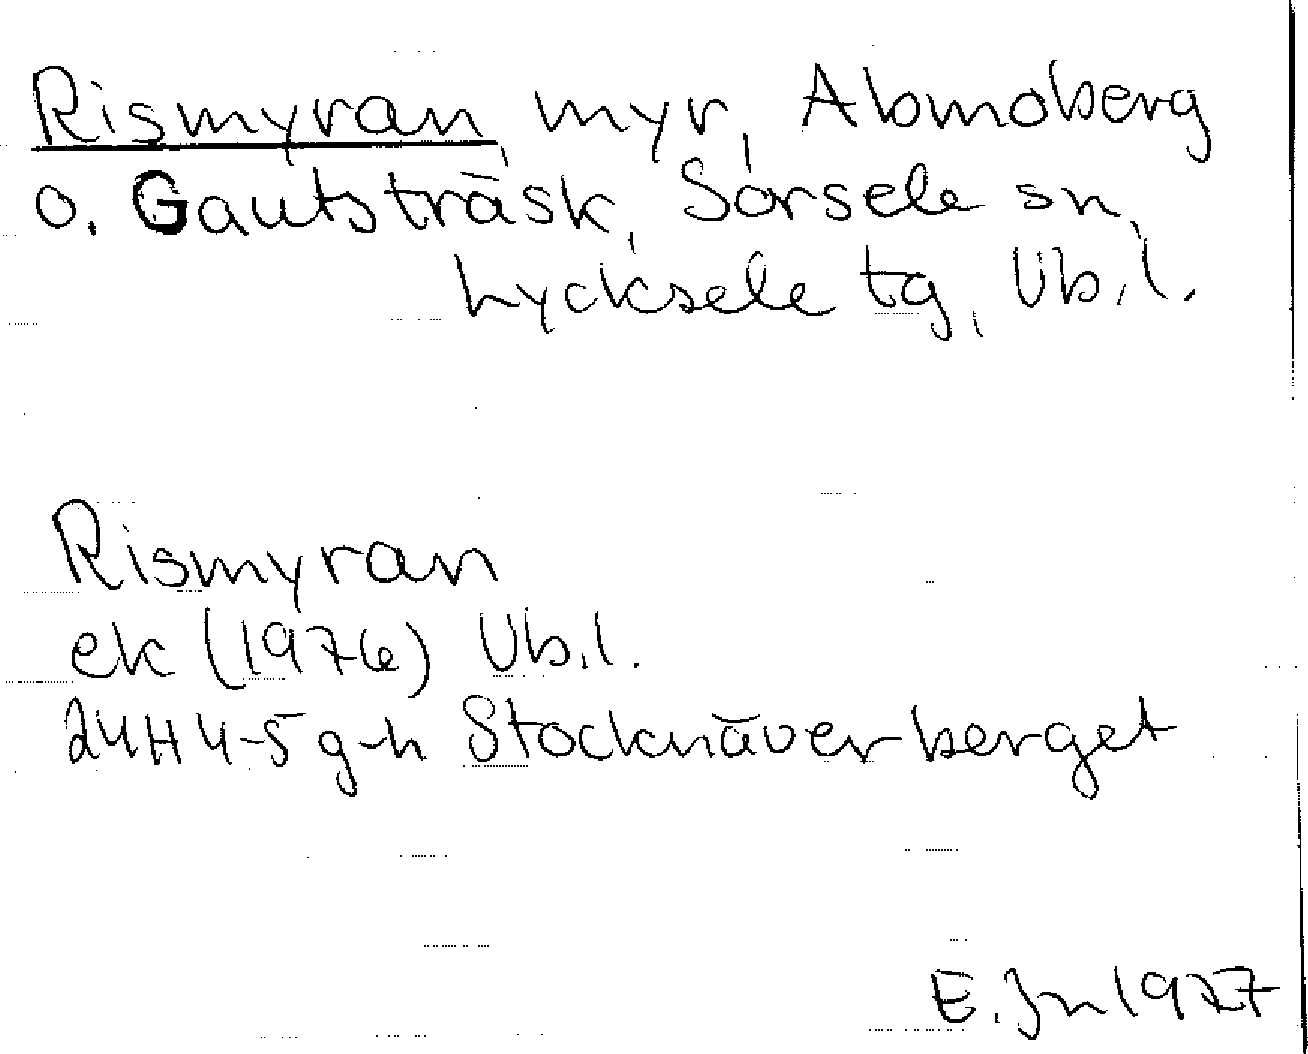 Rismyran, myr, Abmoberg
o. Gautsträsk, Sorsele sn,
Lycksele tg, Vb.l.
Rismyran
ek (1976) Vb.l.
24H 4-5 g-h Stocknäverberget
E. Jn 1927